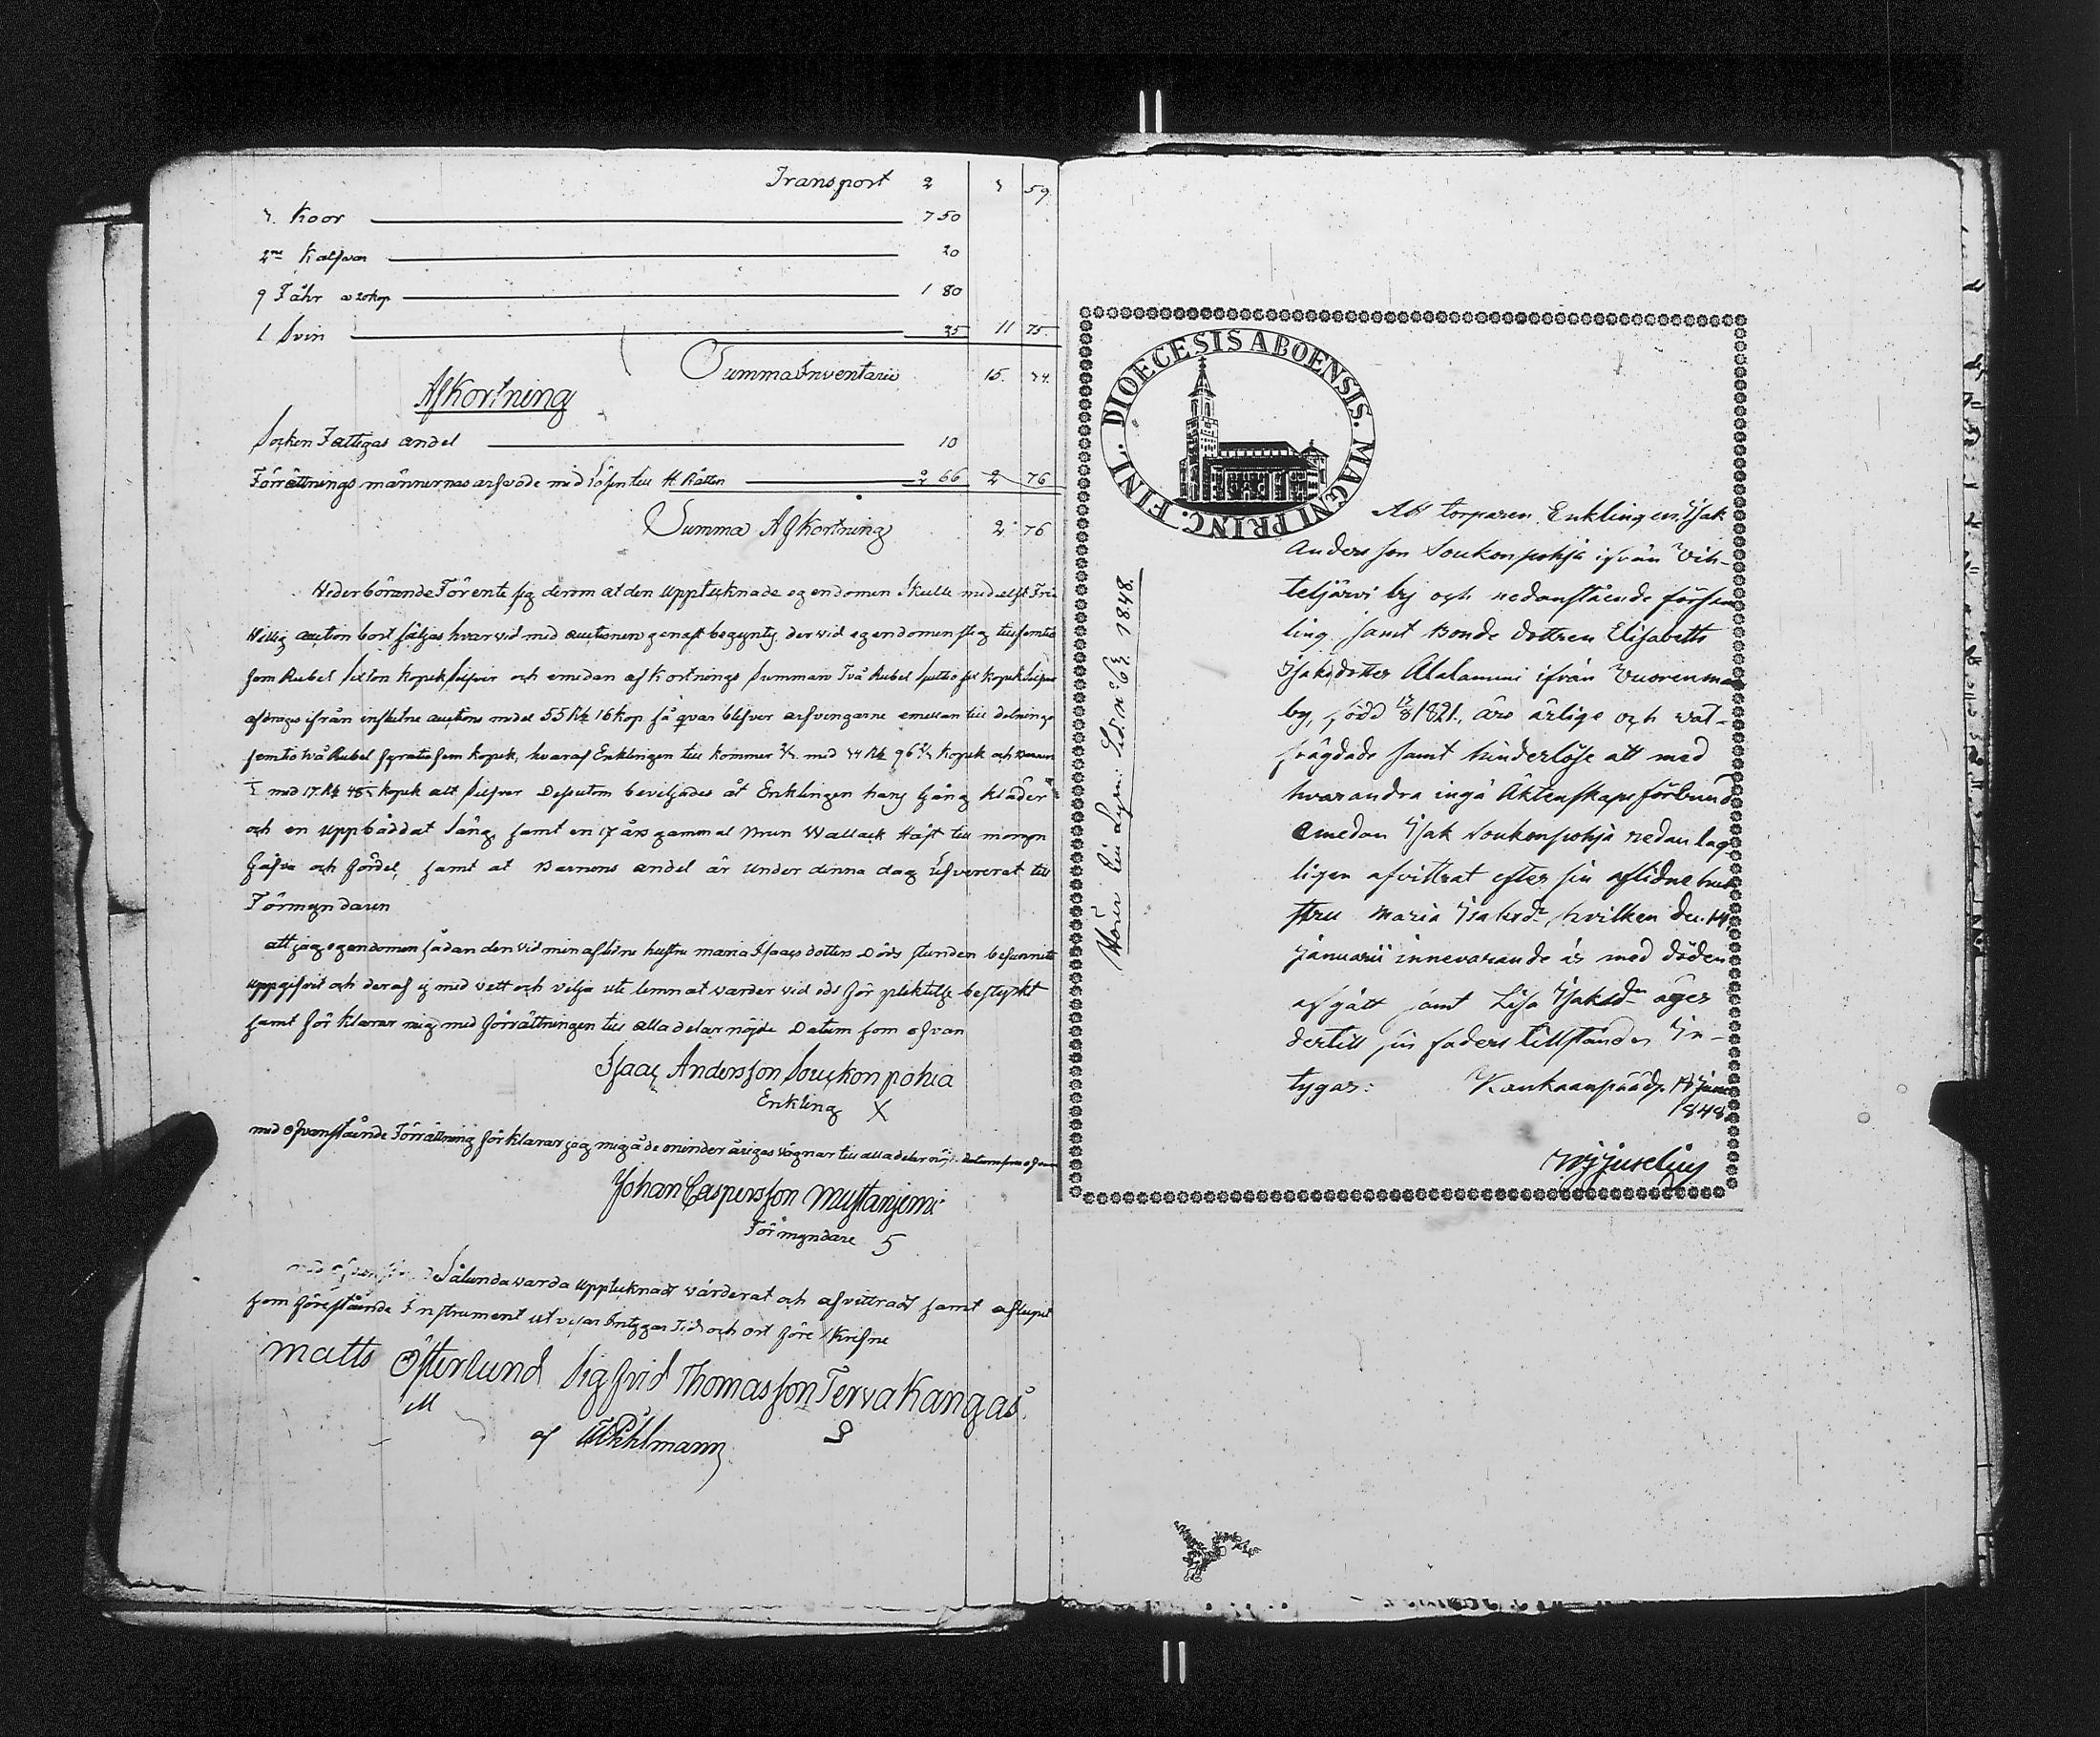 Transport 2 4 59.
4. Koor 7 50
2ne Kalfvar 20
9 Fåhr a 20 kop 1 80
1 Svin 35 11 75.
Summa Inventarii 15. 44.
Afkortning
Socken Fattigas andel 10
Förrättnings männernas arfvode med Lösen till H. Rätten 2 66 2 76
Summa Afkortning 2 76
Vederbörande Förente sig derom at den upptecknade egendomen Skulle medelst Fri
Villig auction bort säljas hvarvid med auctionen genast begynts, dervid egendomen steg till femtio
fem Rubel Sexton kopek Silfver och emedan afkortnings Summan Två Rubel Sjuttio sex kopek Silfver
afdrages ifrån influtne auctions medel 55 Rb 16 kop så qvar blifver arfvingarne emellan till delnings
femtio två Rubel fyratio kopek, hvaraf Enklingen till kommer med 34 Rb 96 kopek och Barnen
med 17. Rb 48 kopek allt Silfver Dessutom beviljades åt Enklingen hans Gång kläder
och en uppbäddat Säng samt en 17 års gammal Brun Wallack Häst till morgon
Gåfva och fördel, samt at Barnens andel är under denna dag Lefvererat till
Förmyndaren
att jag egendomen sådan den vid min aflidne hustru Maria Isaacs dotters Döds stunden befunnits
uppgifvit och deraf ej med vett och vilja ute lemnat varder vid eds för pliktelse bestyrkt
samt för klarar mig med förrättningen till alla delar nöjde Datum som ofvan
Isaac Andersson Souckonpohia
Enkling X
med ofvanstående Förrättning förklarar jag mig å de minder årigas vägnar till alla delar nöjd datum som ofvan
Johan Caspersson Mustaniemi
Förmyndare 5
Sålunda varda upptecknadt värderat och afvittradt samt aflupit
som förestående Instrument ut visar Intygar Tid och ort före skrifne
Matts Österlund Sigfrid Thomasson Tervakangas
M
af Påhlmann
DIOECESIS ABOENSIS. MAGNI PRINC. FINL.
Hörer Ein Lysn: Sid. No 63. 1848.
Att torparen Enklingen, Isak
Andersson Soukonpohja ifrån Vih-
teljärvi by och nedanstående försam
ling, samt Bonde dottren Elisabeth
Isaksdotter Alalammi ifrån Vuorenmaa
by, född 12/8 1821, äro ärlige och väl-
frägdade samt hinderlöse att med
hvarandra ingå Äktenskapsförbund
emedan Isak Soukonpohja redan lag-
ligen afvittrat efter sin aflidne hu-
stru Maria Isaksdr, hvilken den 14
Januarii innevarande år med döden
afgått samt Lisa Isaksdr äger
dertill sin faders tillstånd, In-
tygar: Kankaanpää d. Juni
1848.
Juselius